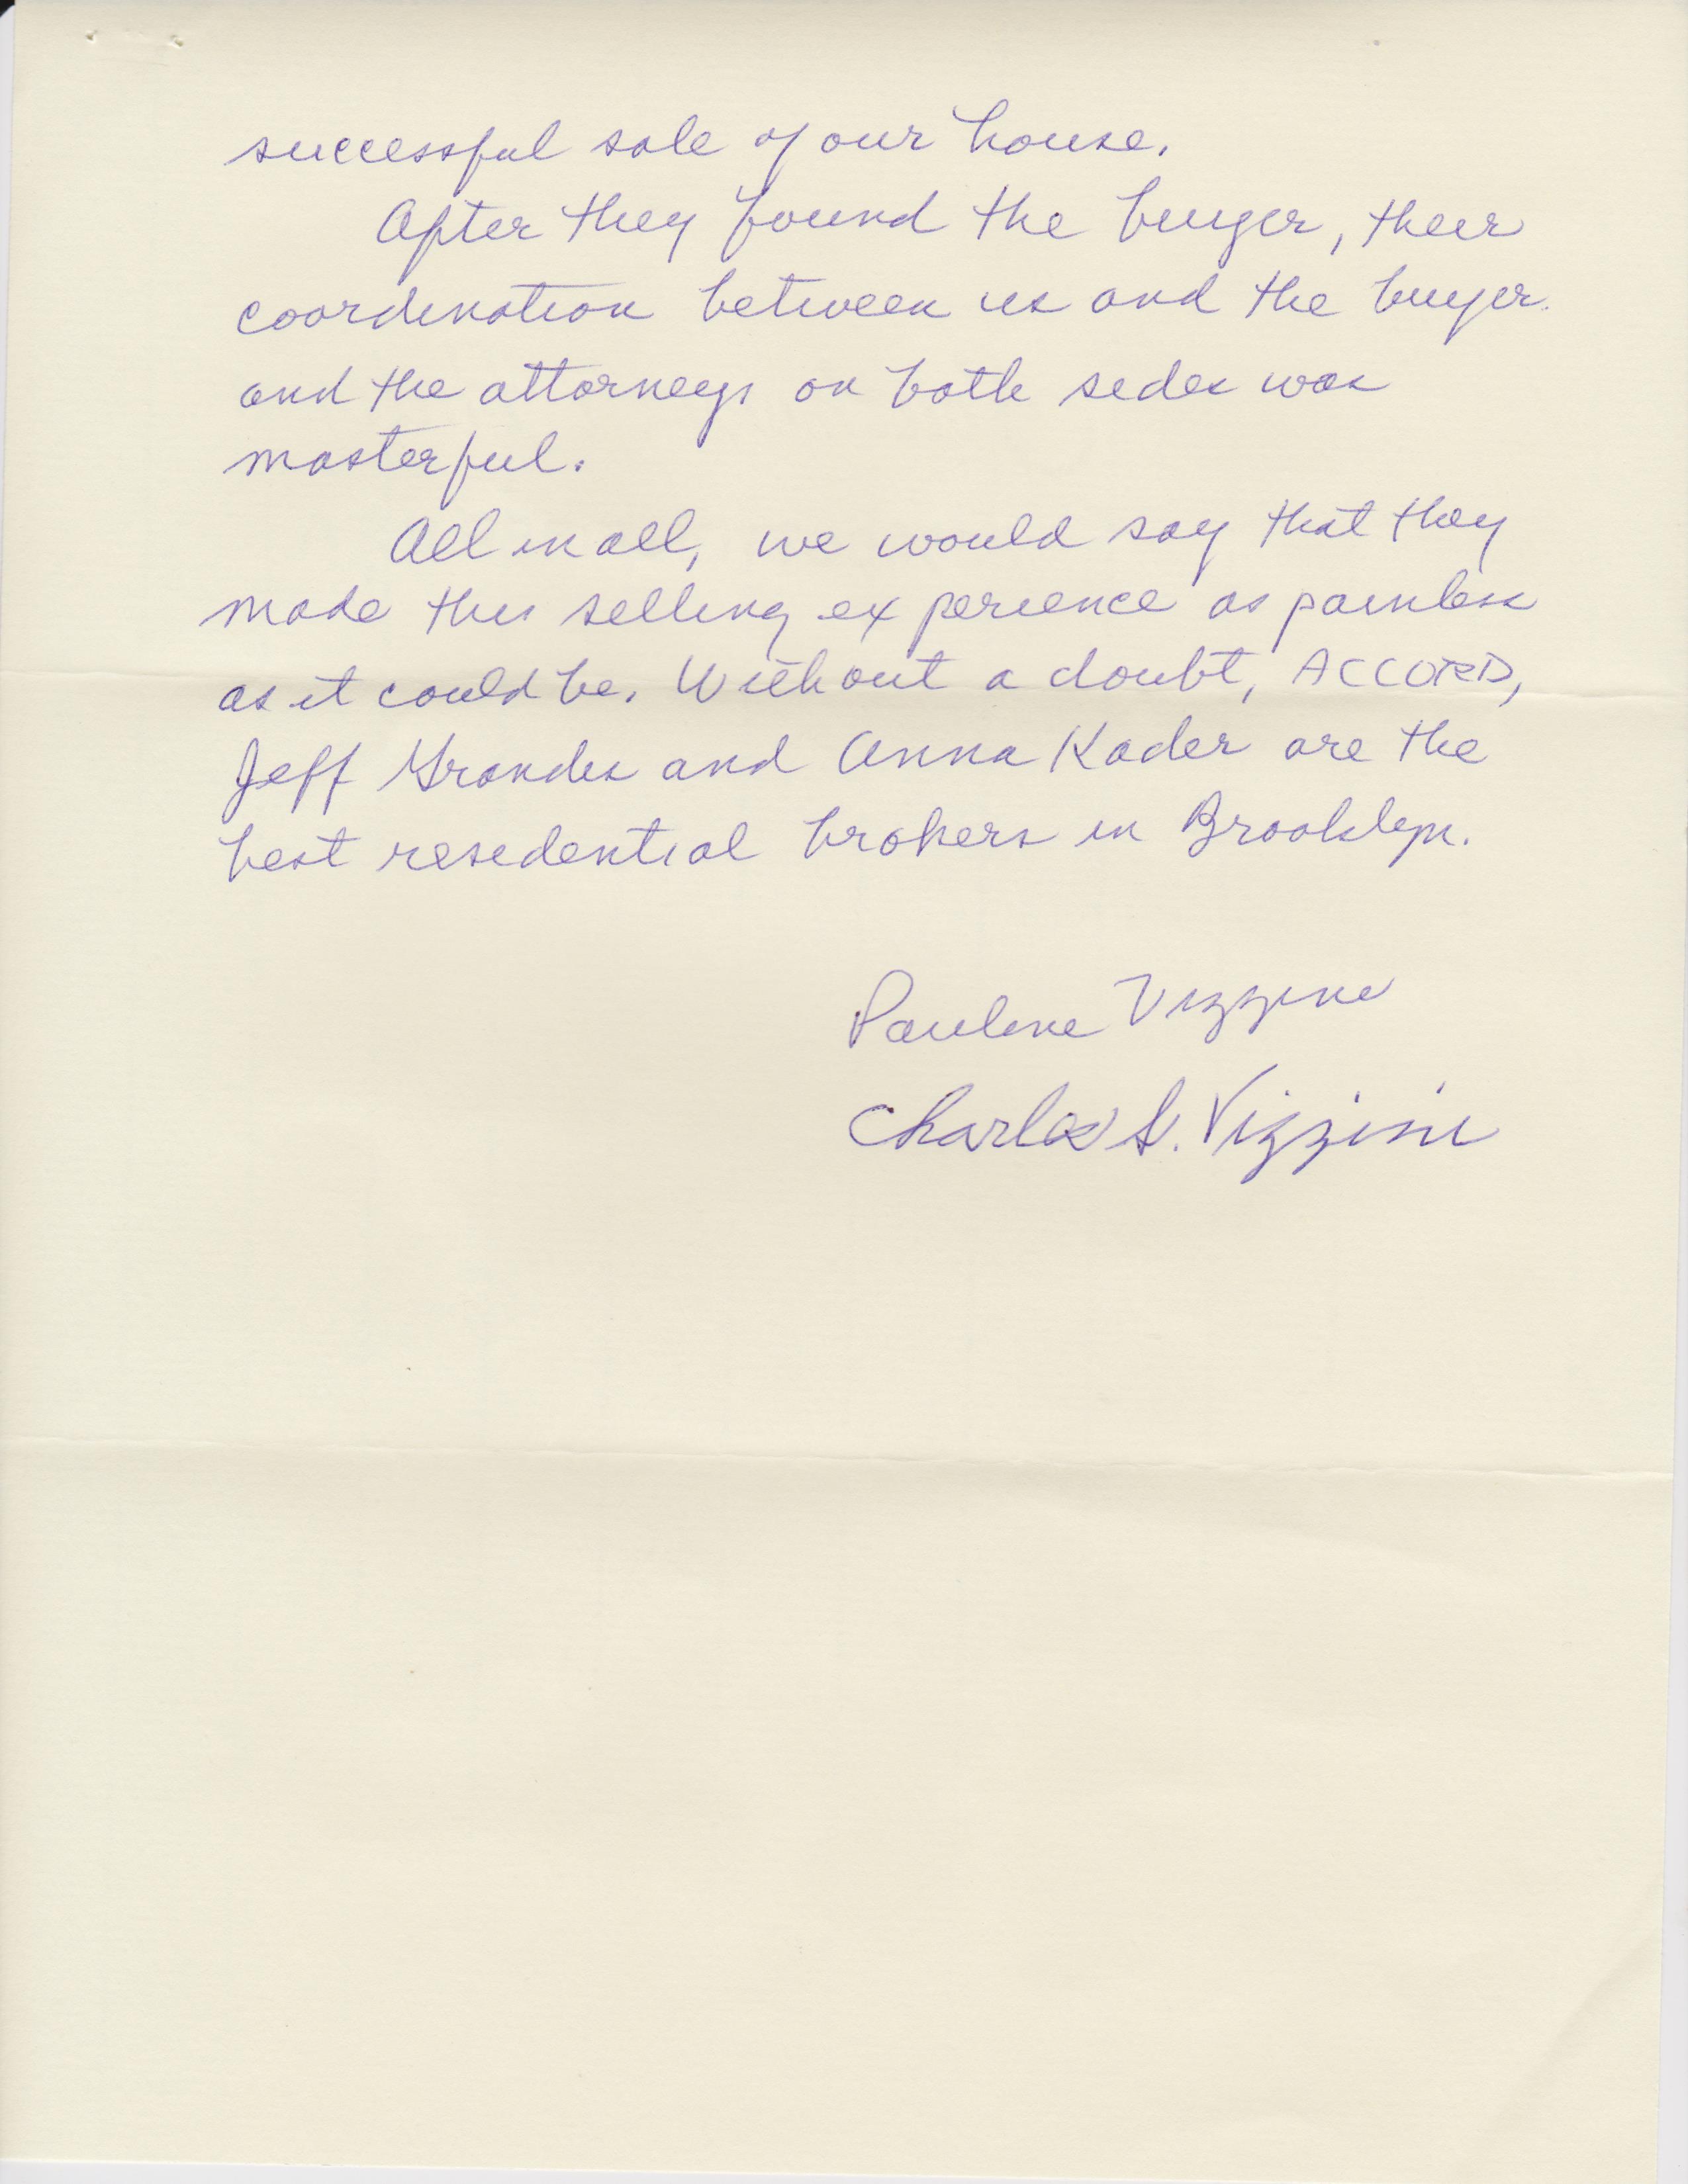 successful sale of our house.
After they found the buyer, their
coordination between us and the buyer
and the attorneys on both sides was
masterful.
All in all, we would say that they
made this selling experience as painless
as it could be. Without a doubt, ACCORD,
Jeff Grandis and Anna Kader are the
best residential brokers in Brooklyn.
Pauline Vizzini
Charles S. Vizzini